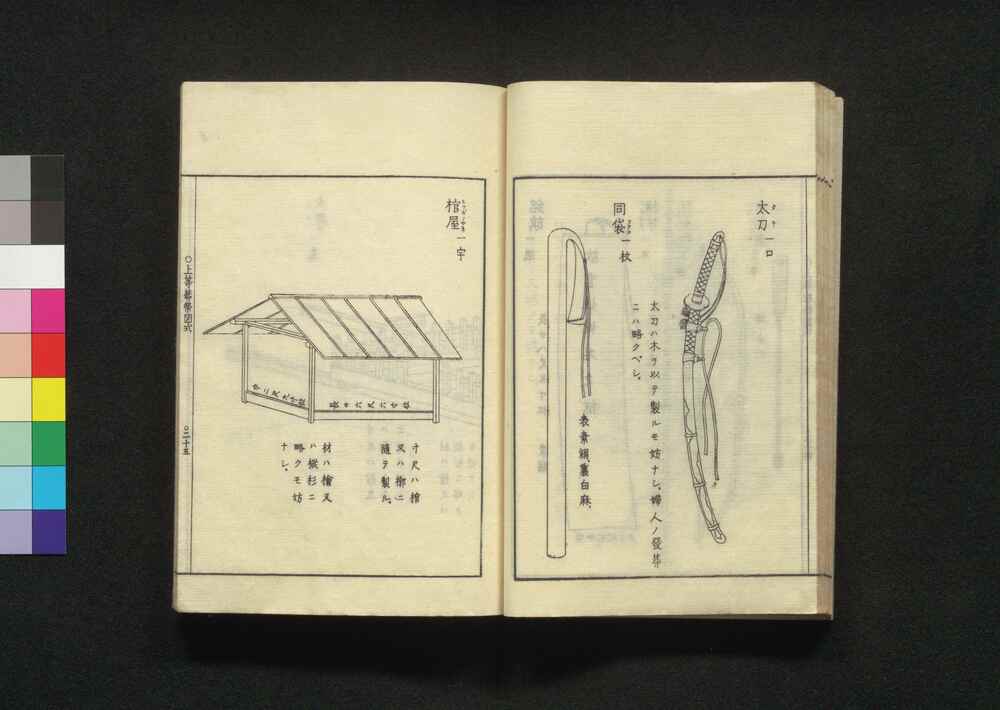 太刀一口
太刀ハ木ヲ以テ製ルモ妨ナシ、婦人ノ發葬
ニハ略クベシ、
同袋一枚
表素絹、裏白麻、
棺屋一宇
寸尺ハ棺
又ハ柳ニ
隨テ製ル、
材ハ檜又
ハ樅杉ニ
略クモ妨
ナシ、
○上等葬祭図式
○二十五